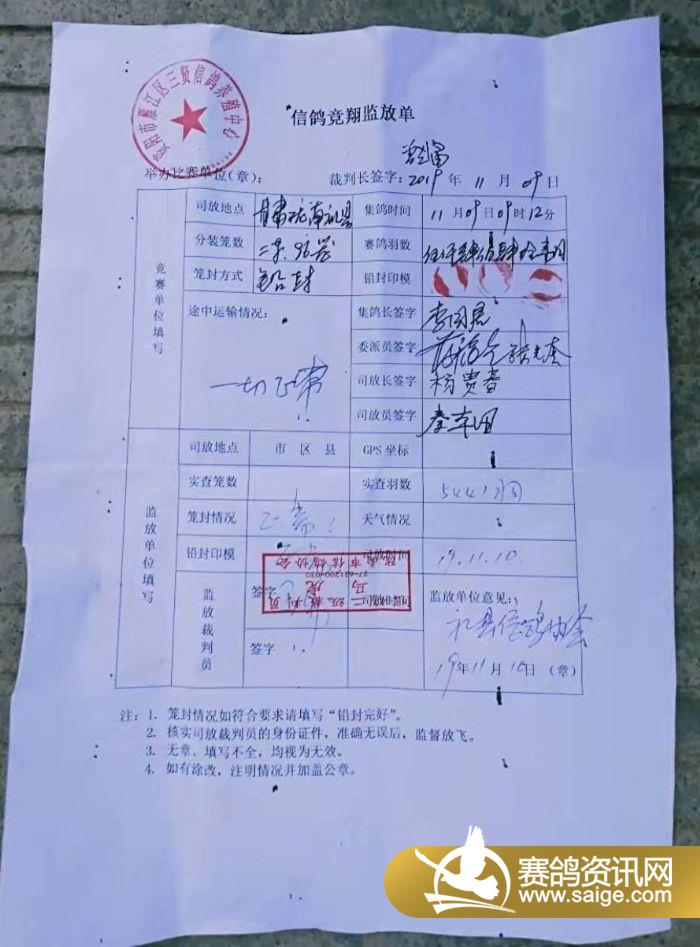 资阳市雁江区三贤信鸽养殖中心
信鸽竞翔监放单
举办比赛单位(章): 裁判长签字: 2019 年 11 月 09 日
竞赛单位填写
司放地点 甘肃陇南礼县 集鸽时间 11 月 09 日 09 时 12 分
分装笼数 赛鸽羽数
笼封方式 铅封 铅封印模
途中运输情况: 集鸽长签字 李国君
一切正常 委派员签字
司放长签字 杨贵春
司放员签字
监放单位填写
司放地点 市 区 县 GPS 坐标
实查笼数 实查羽数 5441羽
笼封情况 正常 天气情况
铅封印模 司放时间 19.11.10.
陇南市信鸽协会
二级裁判员
监放裁判员 签字 监放单位意见:
礼县信鸽协会
签字: 19年 11 月 10日 (章)
注: 1. 笼封情况如符合要求请填写“铅封完好”。
2. 核实司放裁判员的身份证件,准确无误后,监督放飞。
3. 无章、填写不全,均视为无效。
4. 如有涂改,注明情况并加盖公章。
赛鸽资讯网
www.saige.com